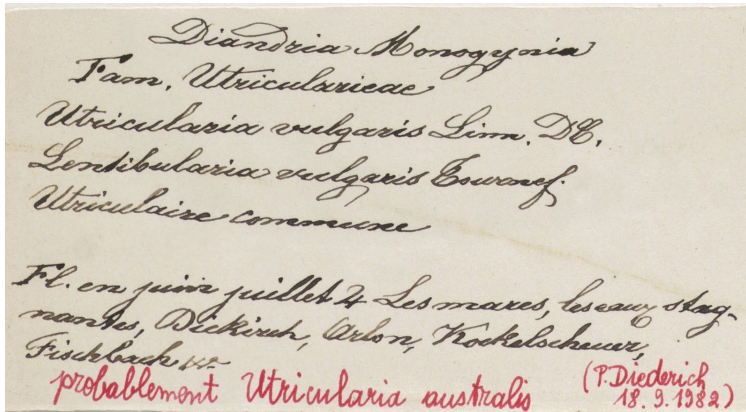 Diandria Monogynia
Fam. Utricularieae
Utricularia vulgaris Linn. DC.
Lentibularia vulgaris Tournef.
Utriculaire commune
Fl. en juin juillet ♃ Les mares, les eaux stag-
nantes, Diekirch, Arlon, Kockelscheuer,
Fischbach etc.
probablement Utricularia australis (P. Diederich
18.9.1982)